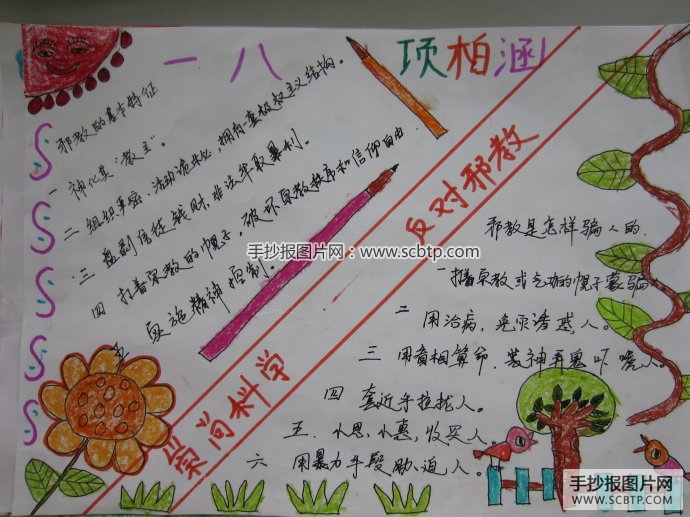 一 八 项柏涵
邪教的基本特征
一 神化其"教主"。
二 组织严密,活动诡秘,拥有一套极权主义结构。
三 盘剥信徒钱财,非法牟取暴利。
四 打着宗教的幌子,破坏宗教秩序和信仰自由
五 实施精神控制。
崇尚科学
反对邪教
邪教是怎样骗人的.
一 打着宗教或气功的幌子蒙骗
二 用治病,免灾诱惑人。
三 用看相算命,装神弄鬼吓唬人。
四 套近乎拉拢人。
五.小恩,小惠,收买人。
六 用暴力手段胁迫人。
手抄报图片网:www.scbtp.com
手抄报图片网
WWW.SCBTP.COM